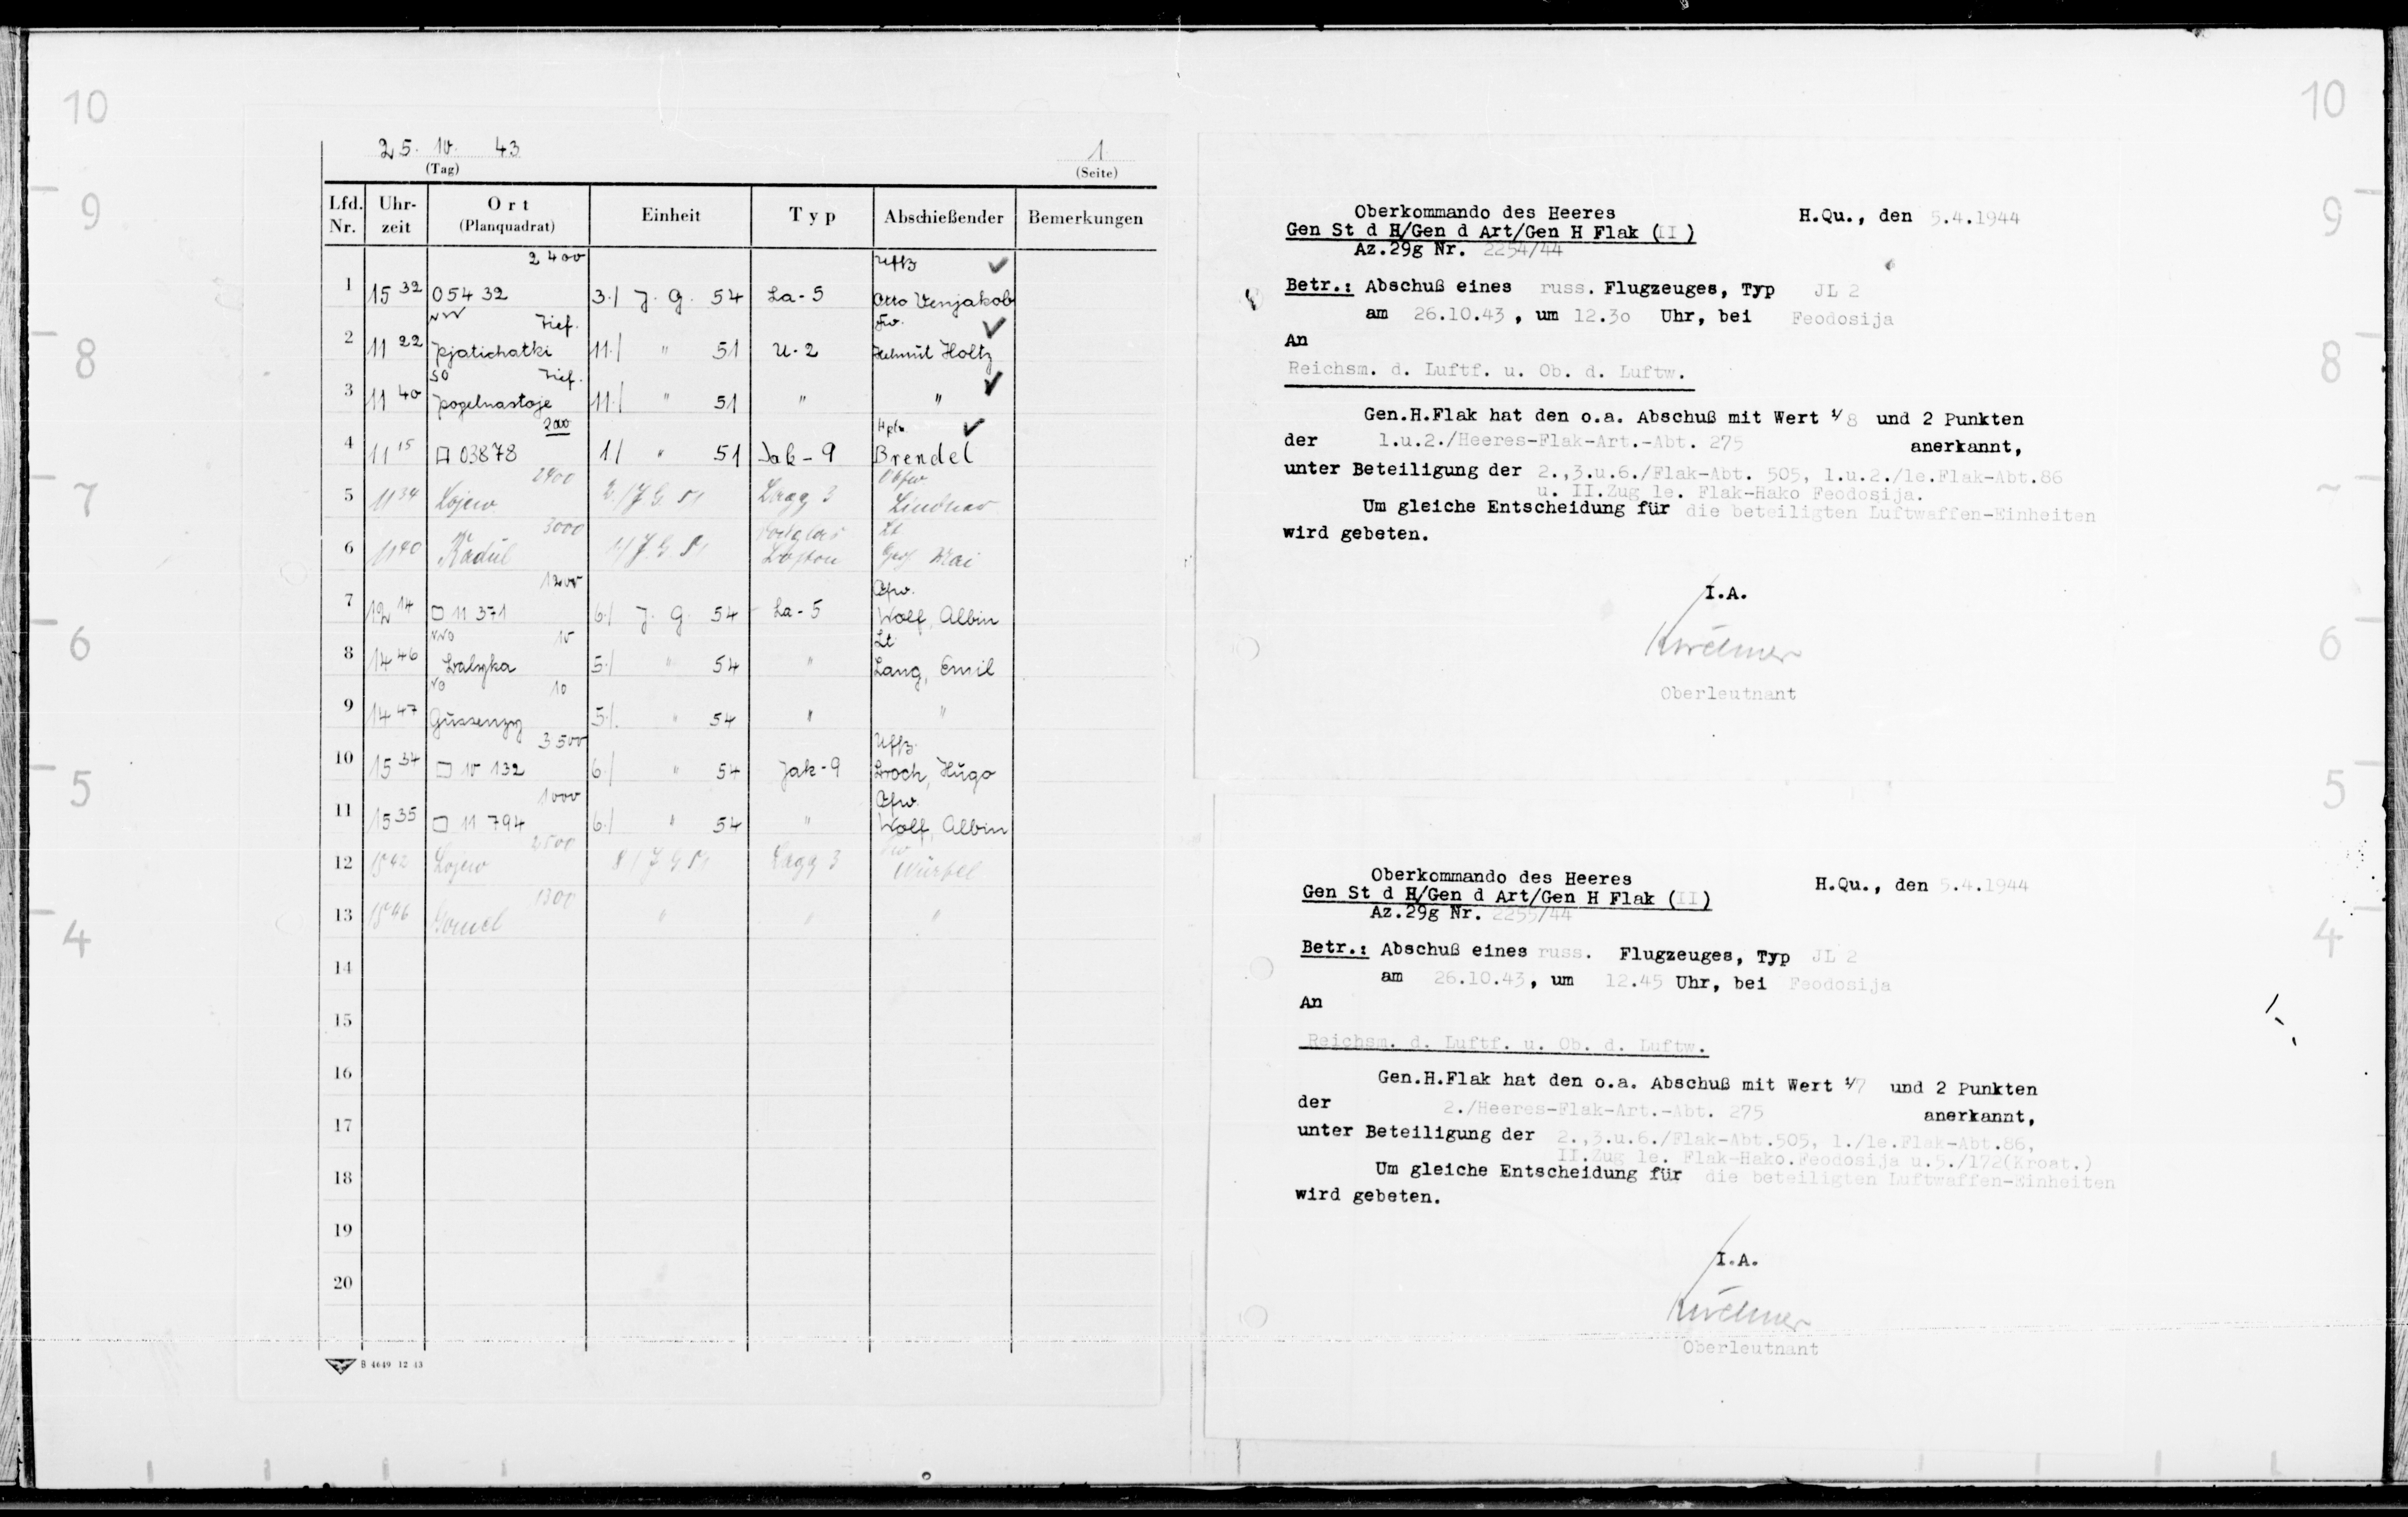 10
9
8
7
6
5
4
25. 10. 43
(Tag)
1
(Seite)
Lfd. Nr. Uhrzeit Ort (Planquadrat) Einheit Typ Abschießender Bemerkungen
2400 Uffz ✓
1 15 32 054 32 3./ J. G. 54 La-5 Otto Venjakob
NW Tief. Fw. ✓
2 11 22 Pjatichatki 11./ " 51 U-2 Helmut Holtz
SO Tief. ✓
3 11 40 11./ " 51 " "
200 Hptm. ✓
4 11 15 03878 1./ " 51 Jak-9 Brendel
2400 Obfw
5 11 34 Lojew /J G 51 Lagg 3 Lindner
3000 Lt
6 11 40 Radul /J G 51 Boston Mai
1200 Ofw.
7 12 14 □ 11 371 6./ J. G. 54 La-5 Wolf, Albin
NNO 10 Lt
8 14 46 5./ " 54 " Lang, Emil
NO 10
9 14 47 5./ " 54 " "
3500 Uffz.
10 15 34 □ 10 132 6./ " 54 Jak-9 Broch, Hugo
1000 Ofw.
11 15 35 □ 11 794 6./ " 54 " Wolf, Albin
2500 Fw
12 15 42 Lojew 8/J G 51 Lagg 3 Würfel
1300
13 15 46 Gomel " " "
14
15
16
17
18
19
20
B 4649 12 43
Oberkommando des Heeres
H.Qu., den 5.4.1944
Gen St d H/Gen d Art/Gen H Flak (II)
Az.29g Nr. 2254/44
Betr.: Abschuß eines russ. Flugzeuges, Typ JL 2
am 26.10.43, um 12.30 Uhr, bei Feodosija
An
Reichsm. d. Luftf. u. Ob. d. Luftw.
Gen.H.Flak hat den o.a. Abschuß mit Wert 1/8 und 2 Punkten
der 1.u.2./Heeres-Flak-Art.-Abt. 275 anerkannt,
unter Beteiligung der 2.,3.u.6./Flak-Abt. 505, 1.u.2./le.Flak-Abt.86
u. II.Zug le. Flak-Hako Feodosija.
Um gleiche Entscheidung für die beteiligten Luftwaffen-Einheiten
wird gebeten.
I.A.
Oberleutnant
Oberkommando des Heeres
H.Qu., den 5.4.1944
Gen St d H/Gen d Art/Gen H Flak (II)
Az.29g Nr. 2255/44
Betr.: Abschuß eines russ. Flugzeuges, Typ JL 2
am 26.10.43, um 12.45 Uhr, bei Feodosija
An
Reichsm. d. Luftf. u. Ob. d. Luftw.
Gen.H.Flak hat den o.a. Abschuß mit Wert 1/7 und 2 Punkten
der 2./Heeres-Flak-Art.-Abt. 275 anerkannt,
unter Beteiligung der 2.,3.u.6./Flak-Abt.505, 1./le.Flak-Abt.86,
II.Zug le. Flak-Hako.Feodosija u.5./172(Kroat.)
Um gleiche Entscheidung für die beteiligten Luftwaffen-Einheiten
wird gebeten.
I.A.
Oberleutnant
10
9
8
6
5
4